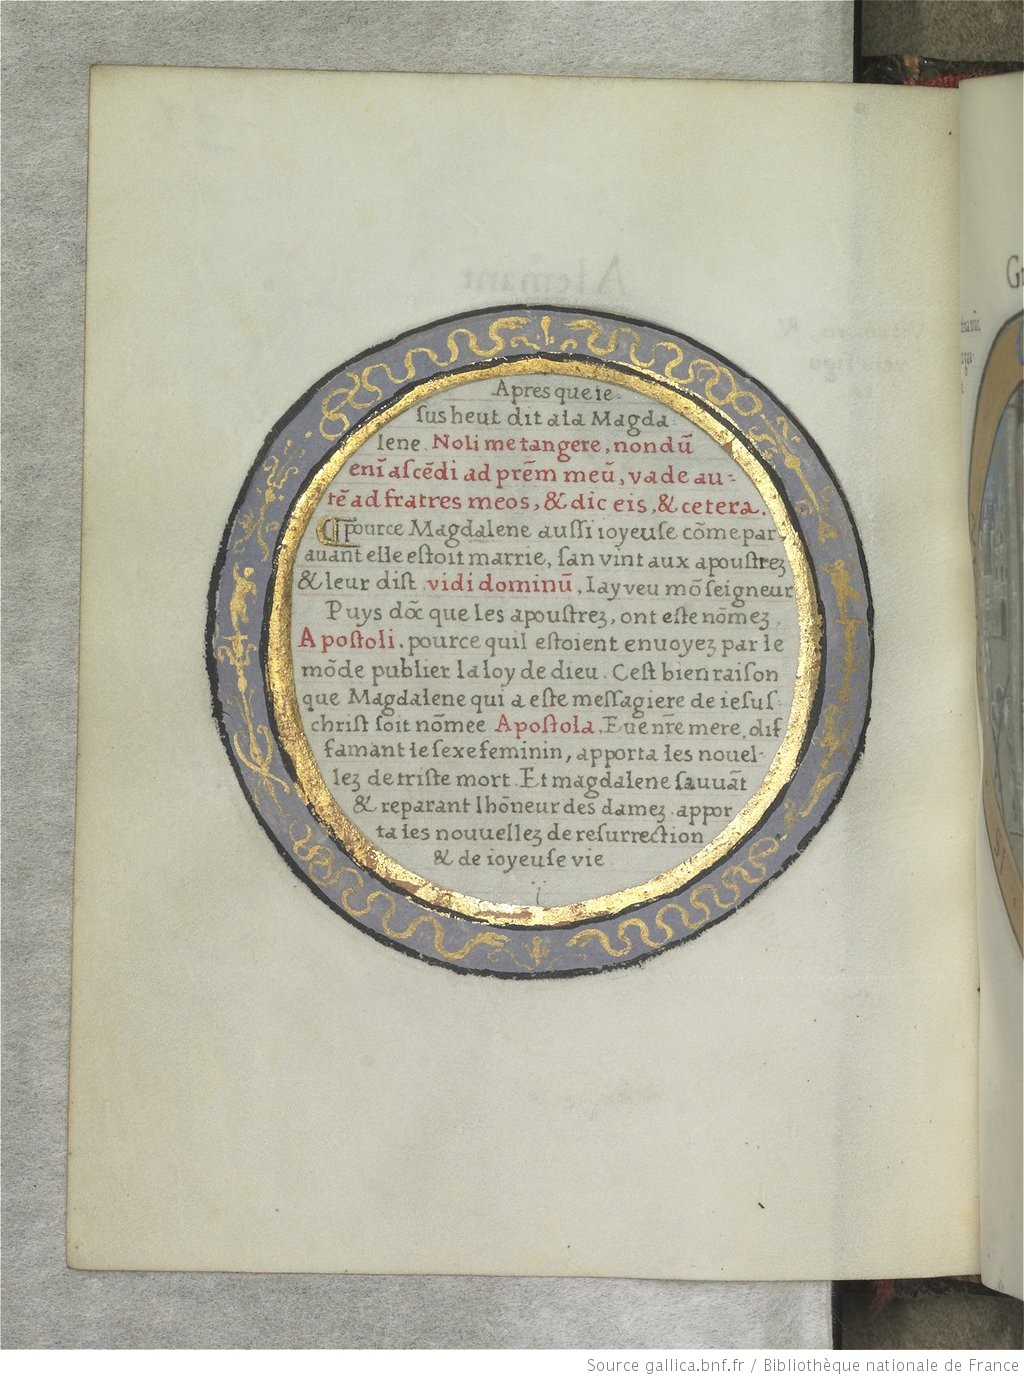 Apres que ie
sus heut dit a la Magda
lene. Noli me tangere, nondū
enī ascēdi ad prēm meū, vade au-
tē ad fratres meos, & dic eis, & cetera.
pource Magdalene aussi ioyeuse cōme par
auant elle estoit marrie, san vint aux apoustrez
& leur dist vidi dominū, Iay veu mō seigneur
Puys dōc que les apoustrez, ont este nōmez
Apostoli. pource quil estoient enuoyez par le
mōde publier la loy de dieu. Cest bien raison
que Magdalene qui a este messagiere de iesus
christ soit nōmee Apostola. Eue nr̄e mere, dif
famant le sexe feminin, apporta les nouel-
lez de triste mort. Et magdalene sauuāt
& reparant lhōneur des damez appor
ta les nouuellez de resurrection
& de ioyeuse vie.
Source gallica.bnf.fr / Bibliothèque nationale de France